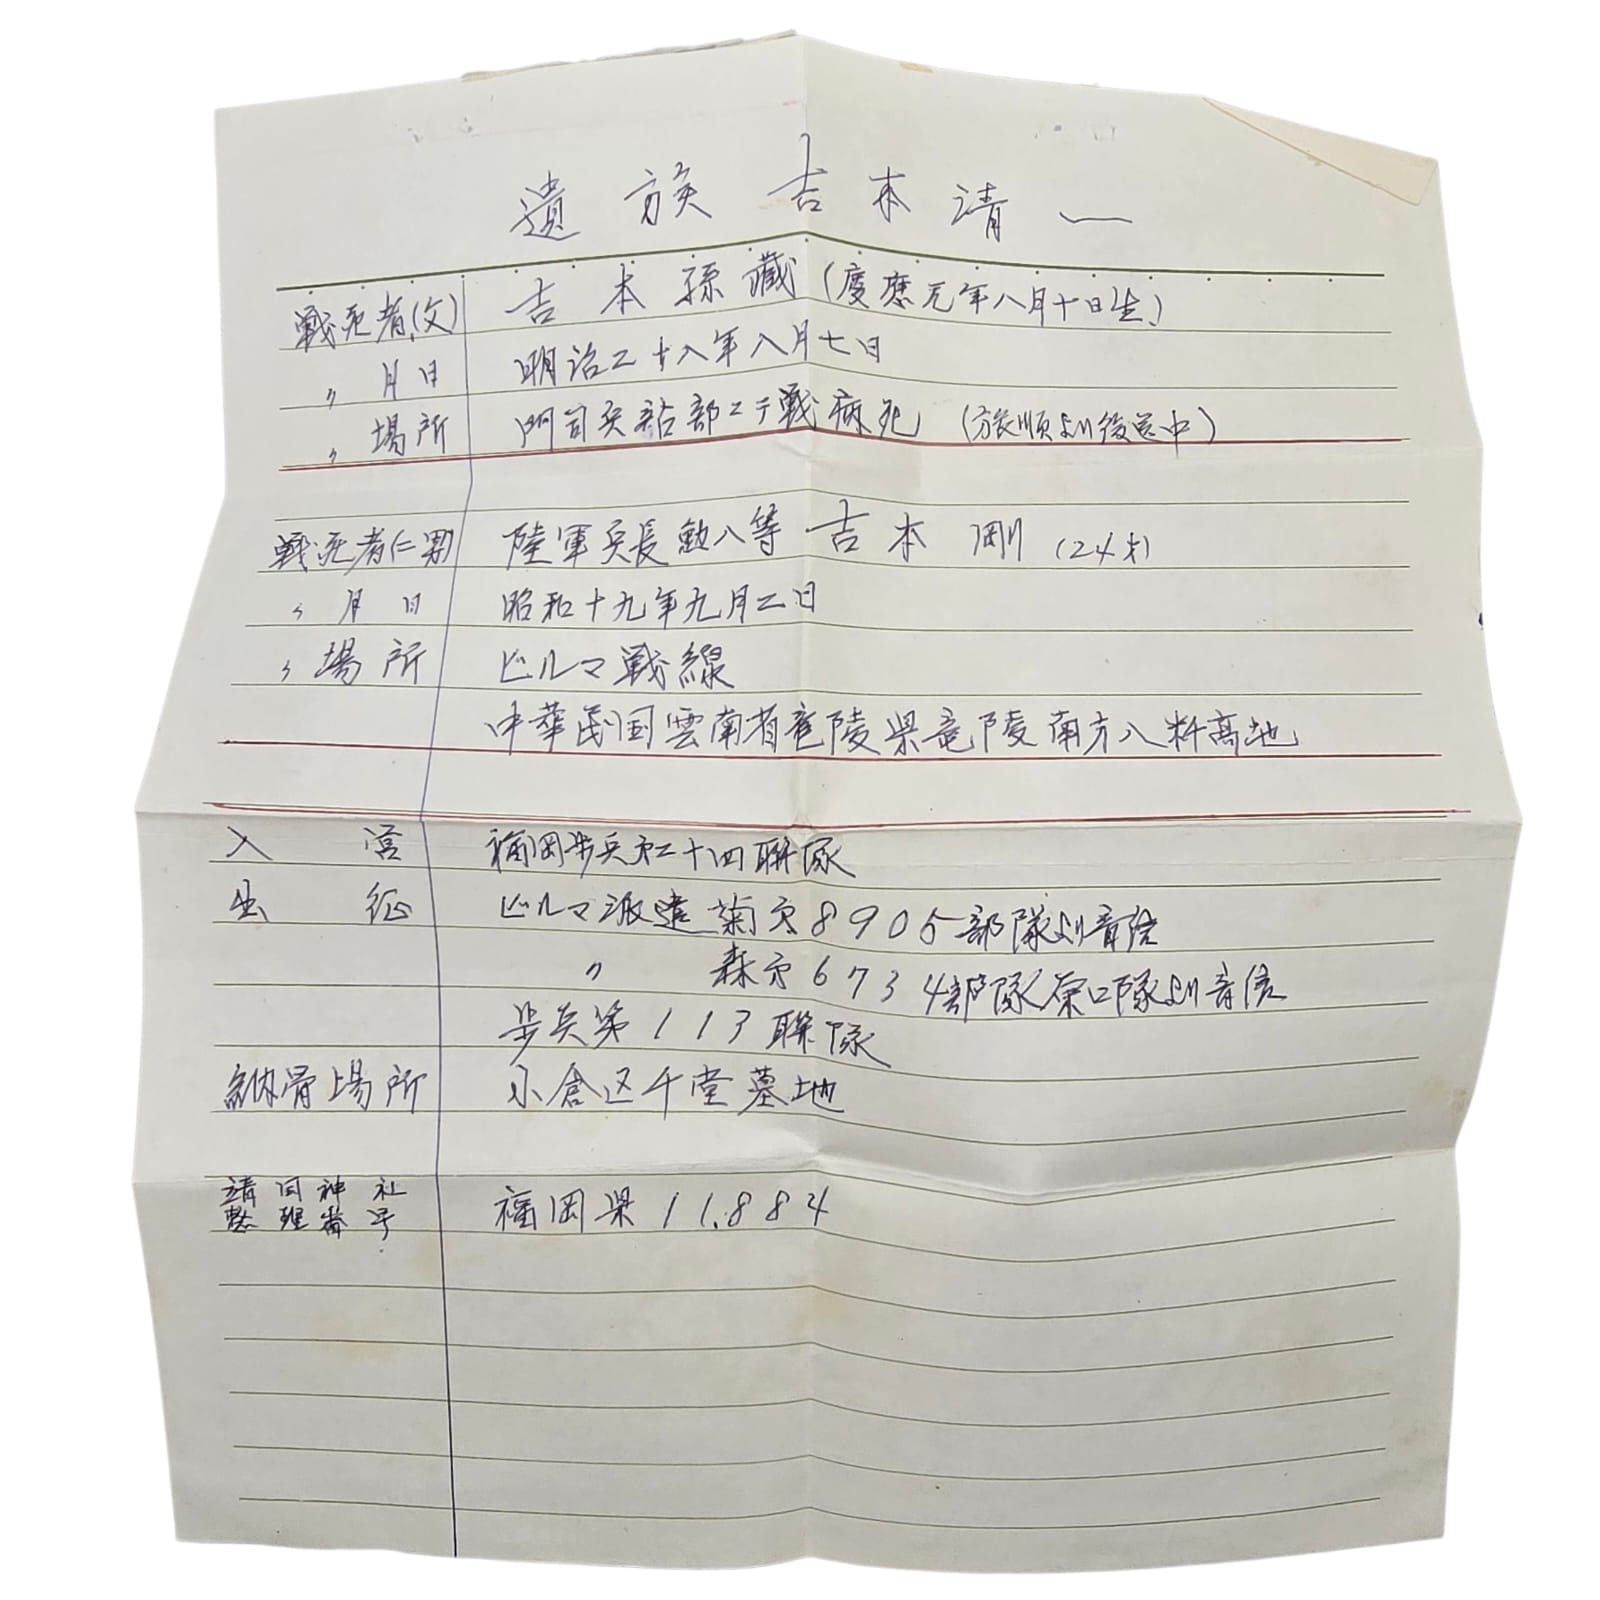 遺族 吉本清一
戦死者(父) 吉本孫蔵(慶應元年八月十日生)
〃 月日 明治三十八年八月七日
〃 場所 門司兵站部ニテ戦病死 (旅順より後送中)
戦死者(二男) 陸軍兵長勲八等 吉本 剛 (24才)
〃 月日 昭和十九年九月二日
〃 場所 ビルマ戦線
中華民国雲南省竜陵県竜陵南方八粁高地
入営 福岡歩兵第二十四聯隊
出征 ビルマ派遣菊第8905部隊より音信
〃 森第6734部隊原口隊より音信
歩兵第113聯隊
納骨場所 小倉区千堂墓地
靖国神社
整理番号 福岡県 11.884